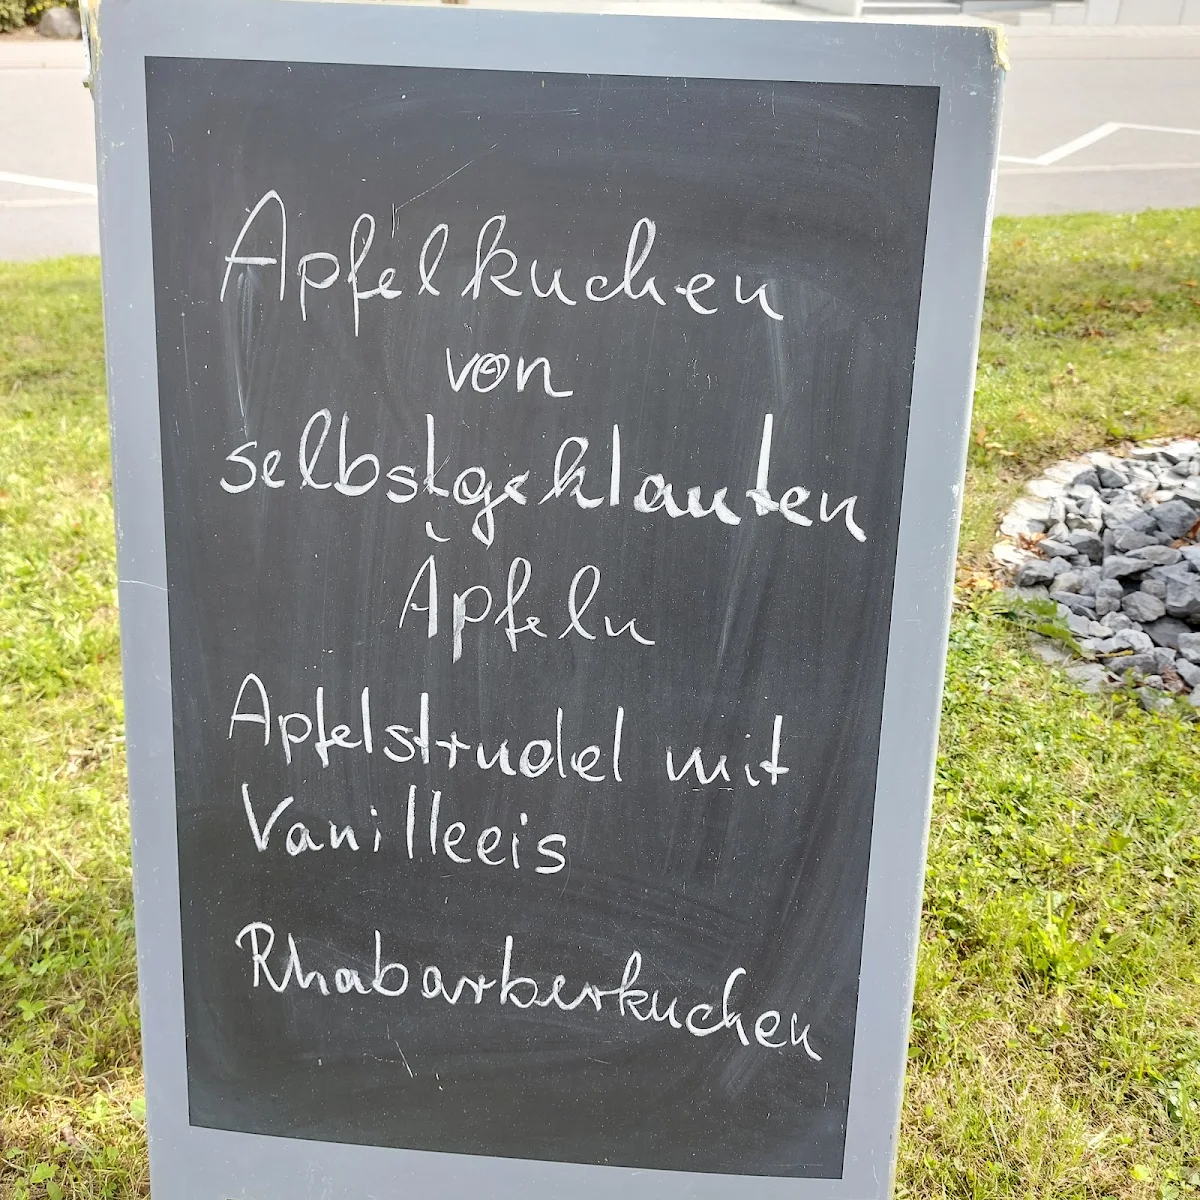 Apfelkuchen
von
selbstgeklauten
Äpfeln
Apfelstrudel mit
Vanilleeis
Rhabarberkuchen